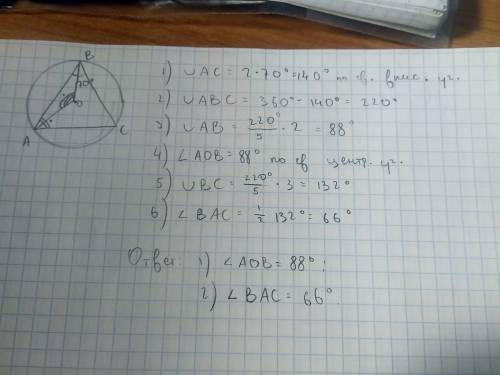 B
70°
O
A
C
1) ∪AC = 2·70°=140° по св. впис. уг.
2) ∪ABC = 360° - 140° = 220°
3) ∪AB = 220°/5 · 2 = 88°
4) ∠AOB = 88° по св центр. уг.
5) ∪BC = 220°/5 · 3 = 132°
6) ∠BAC = 1/2 132° = 66°
Ответ: 1) ∠AOB = 88°;
2) ∠BAC = 66°.